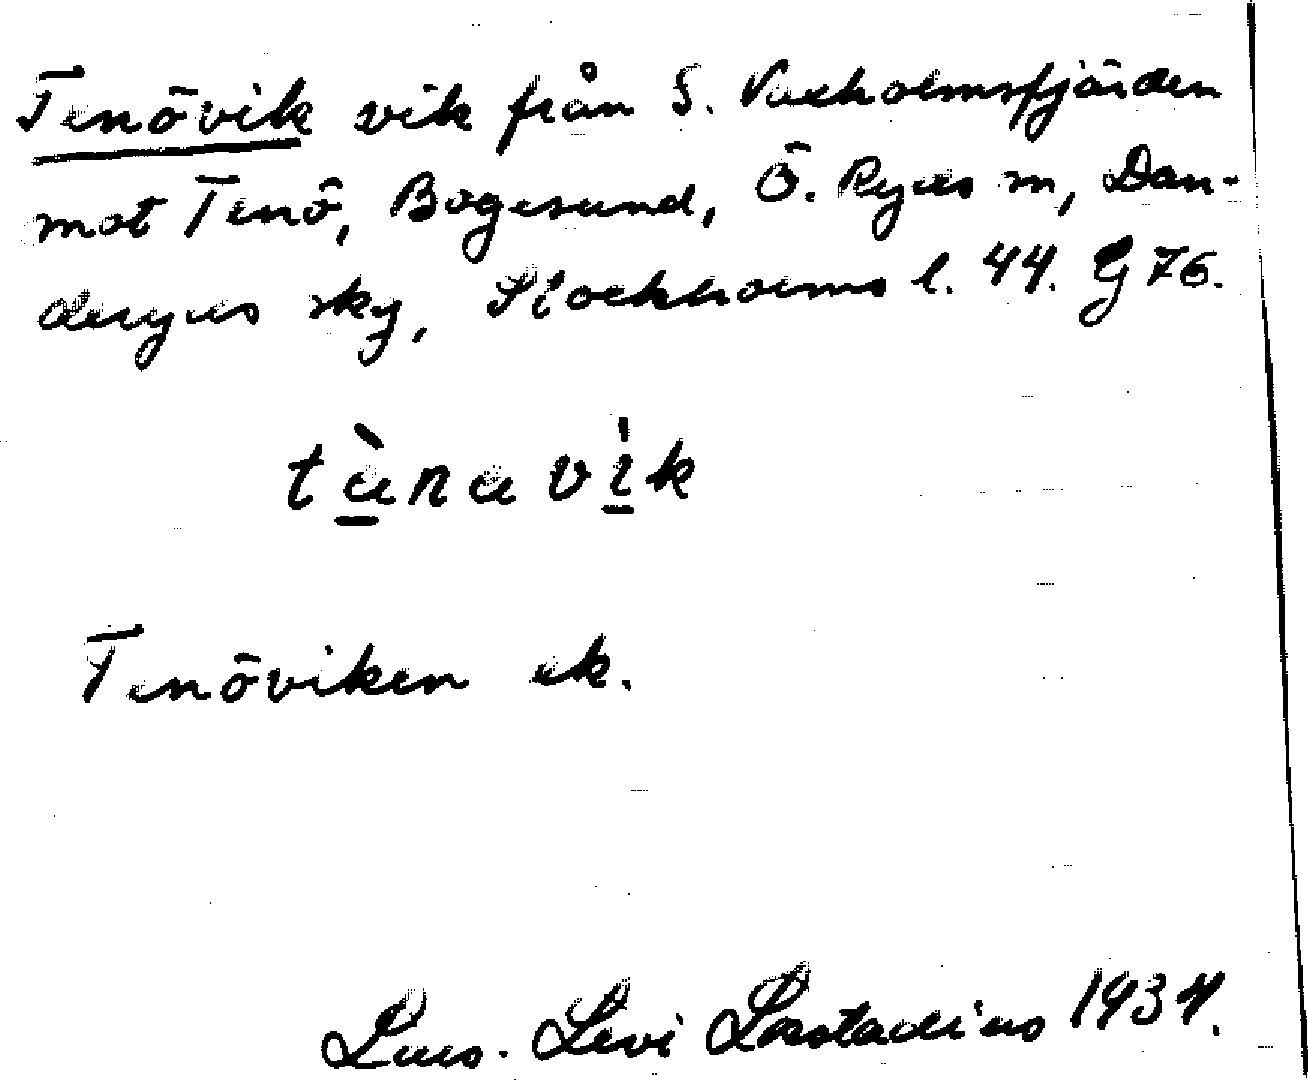 Tenövik vik från S. Vaxholmsfjärden
mot Tenö, Bogesund, Ö. Ryds sn, Dan-
deryds skg, Stockholms l. 44. G 76.
tànavìk
Tenöviken ek.
Lars. Levi Læstadius 1934.